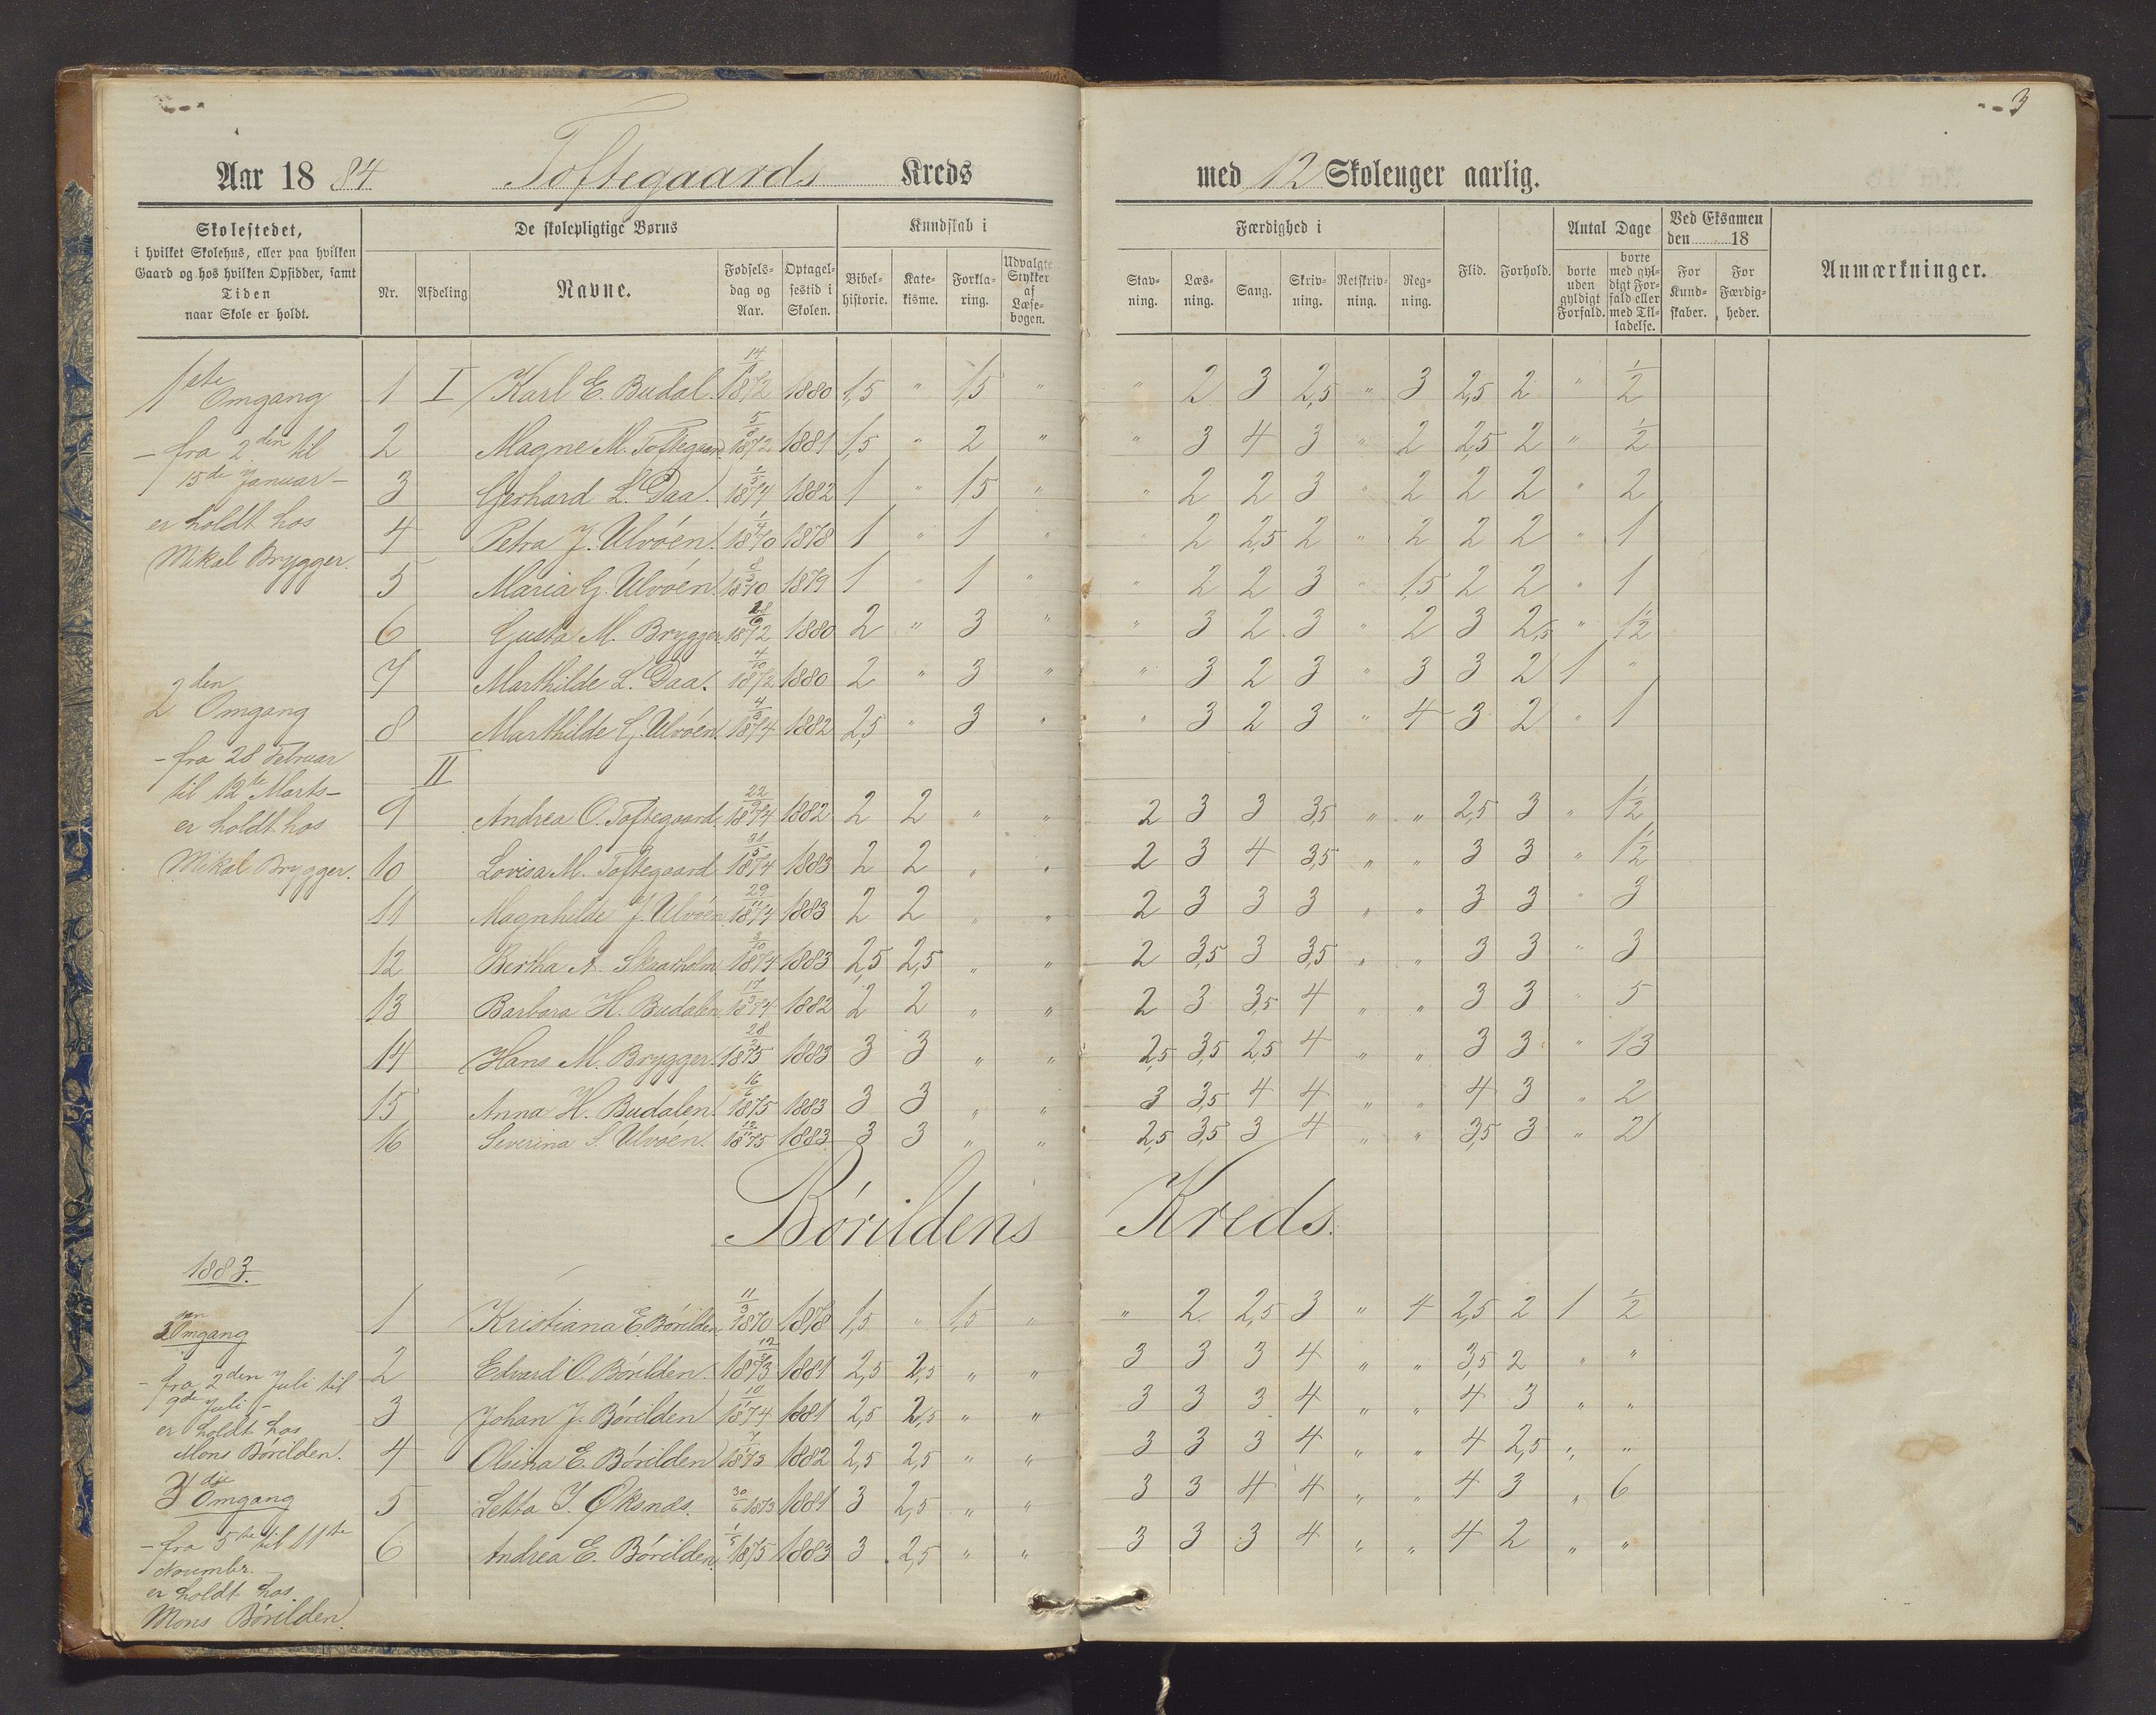 3
Aar 1884 Toftegaards Kreds med 12 Skolenger aarlig.
Skolestedet,
i hvilket Skolehus, eller paa hvilken
Gaard og hos hvilken Opsidder, samt
Tiden
naar Skole er holdt.
De skolepligtige Børns
Nr. Afdeling Navne. Fødselsdag og Aar. Optagelsestid i Skolen.
Kundskab i
Bibelhistorie. Katekisme. Forklaring. Udvalgte Stykker af Læsebogen.
Færdighed i
Stavning. Læsning. Sang. Skrivning. Retskrivning. Regning.
Flid. Forhold.
Antal Dage
borte uden gyldigt Forfald. borte med gyldigt Forfald eller med Tilladelse.
Ved Eksamen den 18
For Kundskaber. For Færdigheder.
Anmærkninger.
1ste
Omgang
- fra 2den til
15de Januar -
er holdt hos
Mikal Brygger.
2den
Omgang
- fra 28 Februar
til 12te Marts -
er holdt hos
Mikal Brygger.
1 I Karl E. Budal. 1872 1880 1,5 " 1,5 " " 2 3 2,5 " 3 2,5 2 " 1/2
2 Magne M. Toftegaard 5/8 1872 1881 1,5 " 2 " " 3 4 3 " 2 2,5 2 " 1/2
3 Gerhard L. Daa. 1/5 1874 1882 1 " 1,5 " " 2 2 3 " 2 2 2 " 2
4 Petra J. Ulvøen. 1/4 1870 1878 1 " 1 " " 2 2,5 2 " 2 2 2 " 1
5 Maria G. Ulvøen. 8/3 1870 1879 1 " 1 " " 2 2 3 " 1,5 2 2 " 1
6 Gusta M. Brygger 1872 1880 2 " 3 " " 3 2 3 " 2 3 2,5 " 1 1/2
7 Marthilde L. Daa. 4/10 1872 1880 2 " 3 " " 3 2 3 " 3 3 2 1 "
8 Marthilde G. Ulvøen. 4/3 1874 1882 2,5 " 3 " " 3 2 3 " 4 3 2 " 1
II
9 Andrea O. Toftegaard 22/9 1874 1882 2 2 " " 2 3 3 3,5 " " 2,5 3 " 1 1/2
10 Lovisa M. Toftegaard 31/5 1874 1883 2 2 " " 2 3 4 3,5 " " 3 3 " 1 1/2
11 Magnhilde J. Ulvøen 29/11 1874 1883 2 2 " " 2 3 3 3 " " 3 3 " 3
12 Bertha A. Skaarholm 3/10 1874 1883 2,5 2,5 " " 2 3,5 3 3,5 " " 3 3 " 3
13 Barbara H. Budalen 17/3 1874 1882 2 2 " " 2 3 3,5 4 " " 3 3 " 5
14 Hans M. Brygger. 28/2 1875 1883 3 3 " " 2,5 3,5 2,5 4 " " 3 3 " 13
15 Anna H. Budalen. 1875 1883 3 3 " " 3 3,5 4 4 " " 4 3 " 2
16 Severina S. Ulvøen. 12/11 1875 1883 3 3 " " 2,5 3,5 3 4 " " 3,5 3 " 2
Børildens Kreds.
1883.
Omgang
- fra 2den Juli til
9de Juli -
er holdt hos
Mons Børilden.
3die
Omgang
- fra 5te til 11te
Novembr.
er holdt hos.
Mons Børilden.
1 Kristiana E. Børilden 11/3 1870 1878 1,5 " 1,5 " " 2 2,5 3 " 4 2,5 2 1 1/2
2 Edvard O. Børilden. 1873 1881 2,5 2,5 " " 3 3 3 4 " " 3,5 2 " "
3 Johan J. Børilden 1874 1881 2,5 2,5 " " 3 3 3 4 " " 4 3 " "
4 Olsina E. Børilden 1873 1882 2,5 2,5 " " 3 3 3 4 " " 4 2,5 " "
5 Letta I. Øksnæs. 30/6 1873 1881 3 2,5 " " 3 3 4 4 " " 4 3 " 6
6 Andrea E. Børilden. 1/5 1875 1883 3 2,5 " " 3 3 3 4 " " 4 2 " "